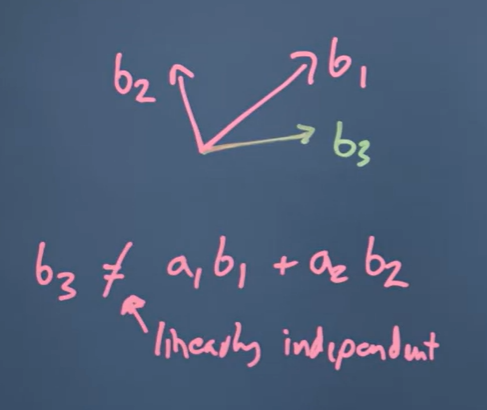 b₂ b₁
b₃
b₃ ≠ a₁ b₁ + a₂ b₂
linearly independent